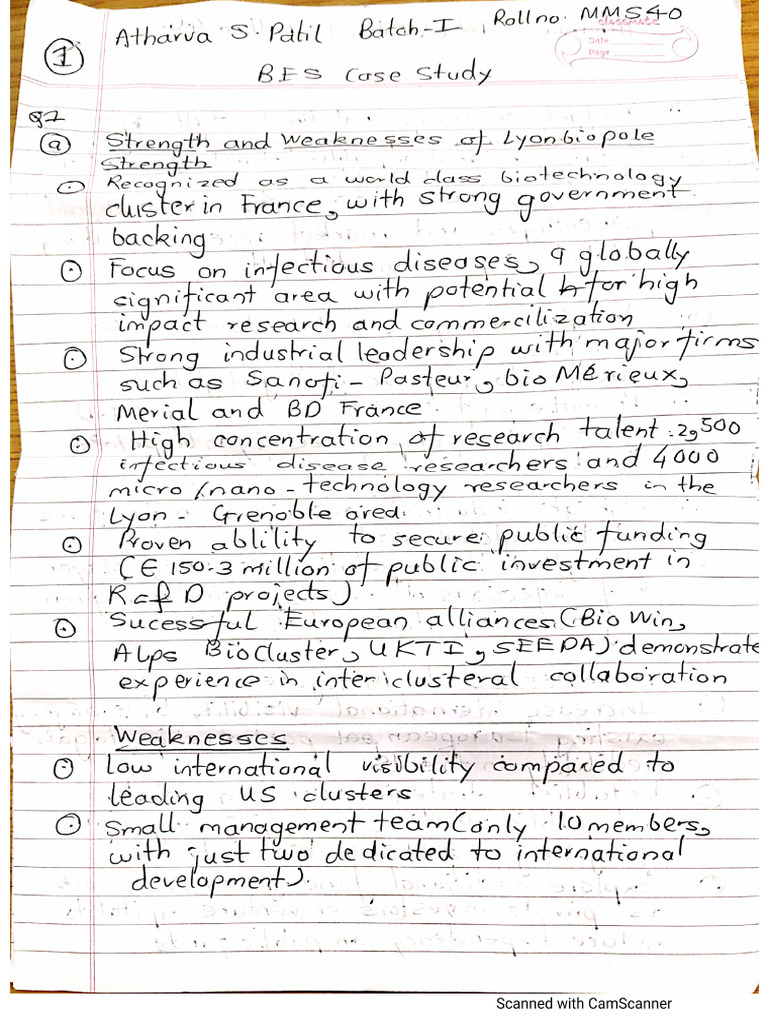 Atharva S. Patil Batch-I Roll no. MMS40
classmate
Date
Page
1
BES Case Study
Q1
a Strength and Weaknesses of Lyonbiopole
Strength
Recognized as a world class biotechnology
cluster in France, with strong government
backing
Focus on infectious diseases, a globally
significant area with potential for high
impact research and commercilization
Strong industrial leadership with major firms
such as Sanofi-Pasteur, bio Mérieux,
Merial and BD France.
High concentration of research talent: 2,500
infectious disease researchers and 4000
micro/nano-technology researchers in the
Lyon-Grenoble area.
Proven ablility to secure public funding
(€150.3 million of public investment in
R&D projects)
Sucessful European alliances (Bio Win,
Alps BioCluster, UKTI, SEEDA) demonstrate
experience in interclusteral collaboration
Weaknesses
Low international visibility compared to
leading US clusters
Small management team (only 10 members,
with just two dedicated to international
development).
Scanned with CamScanner